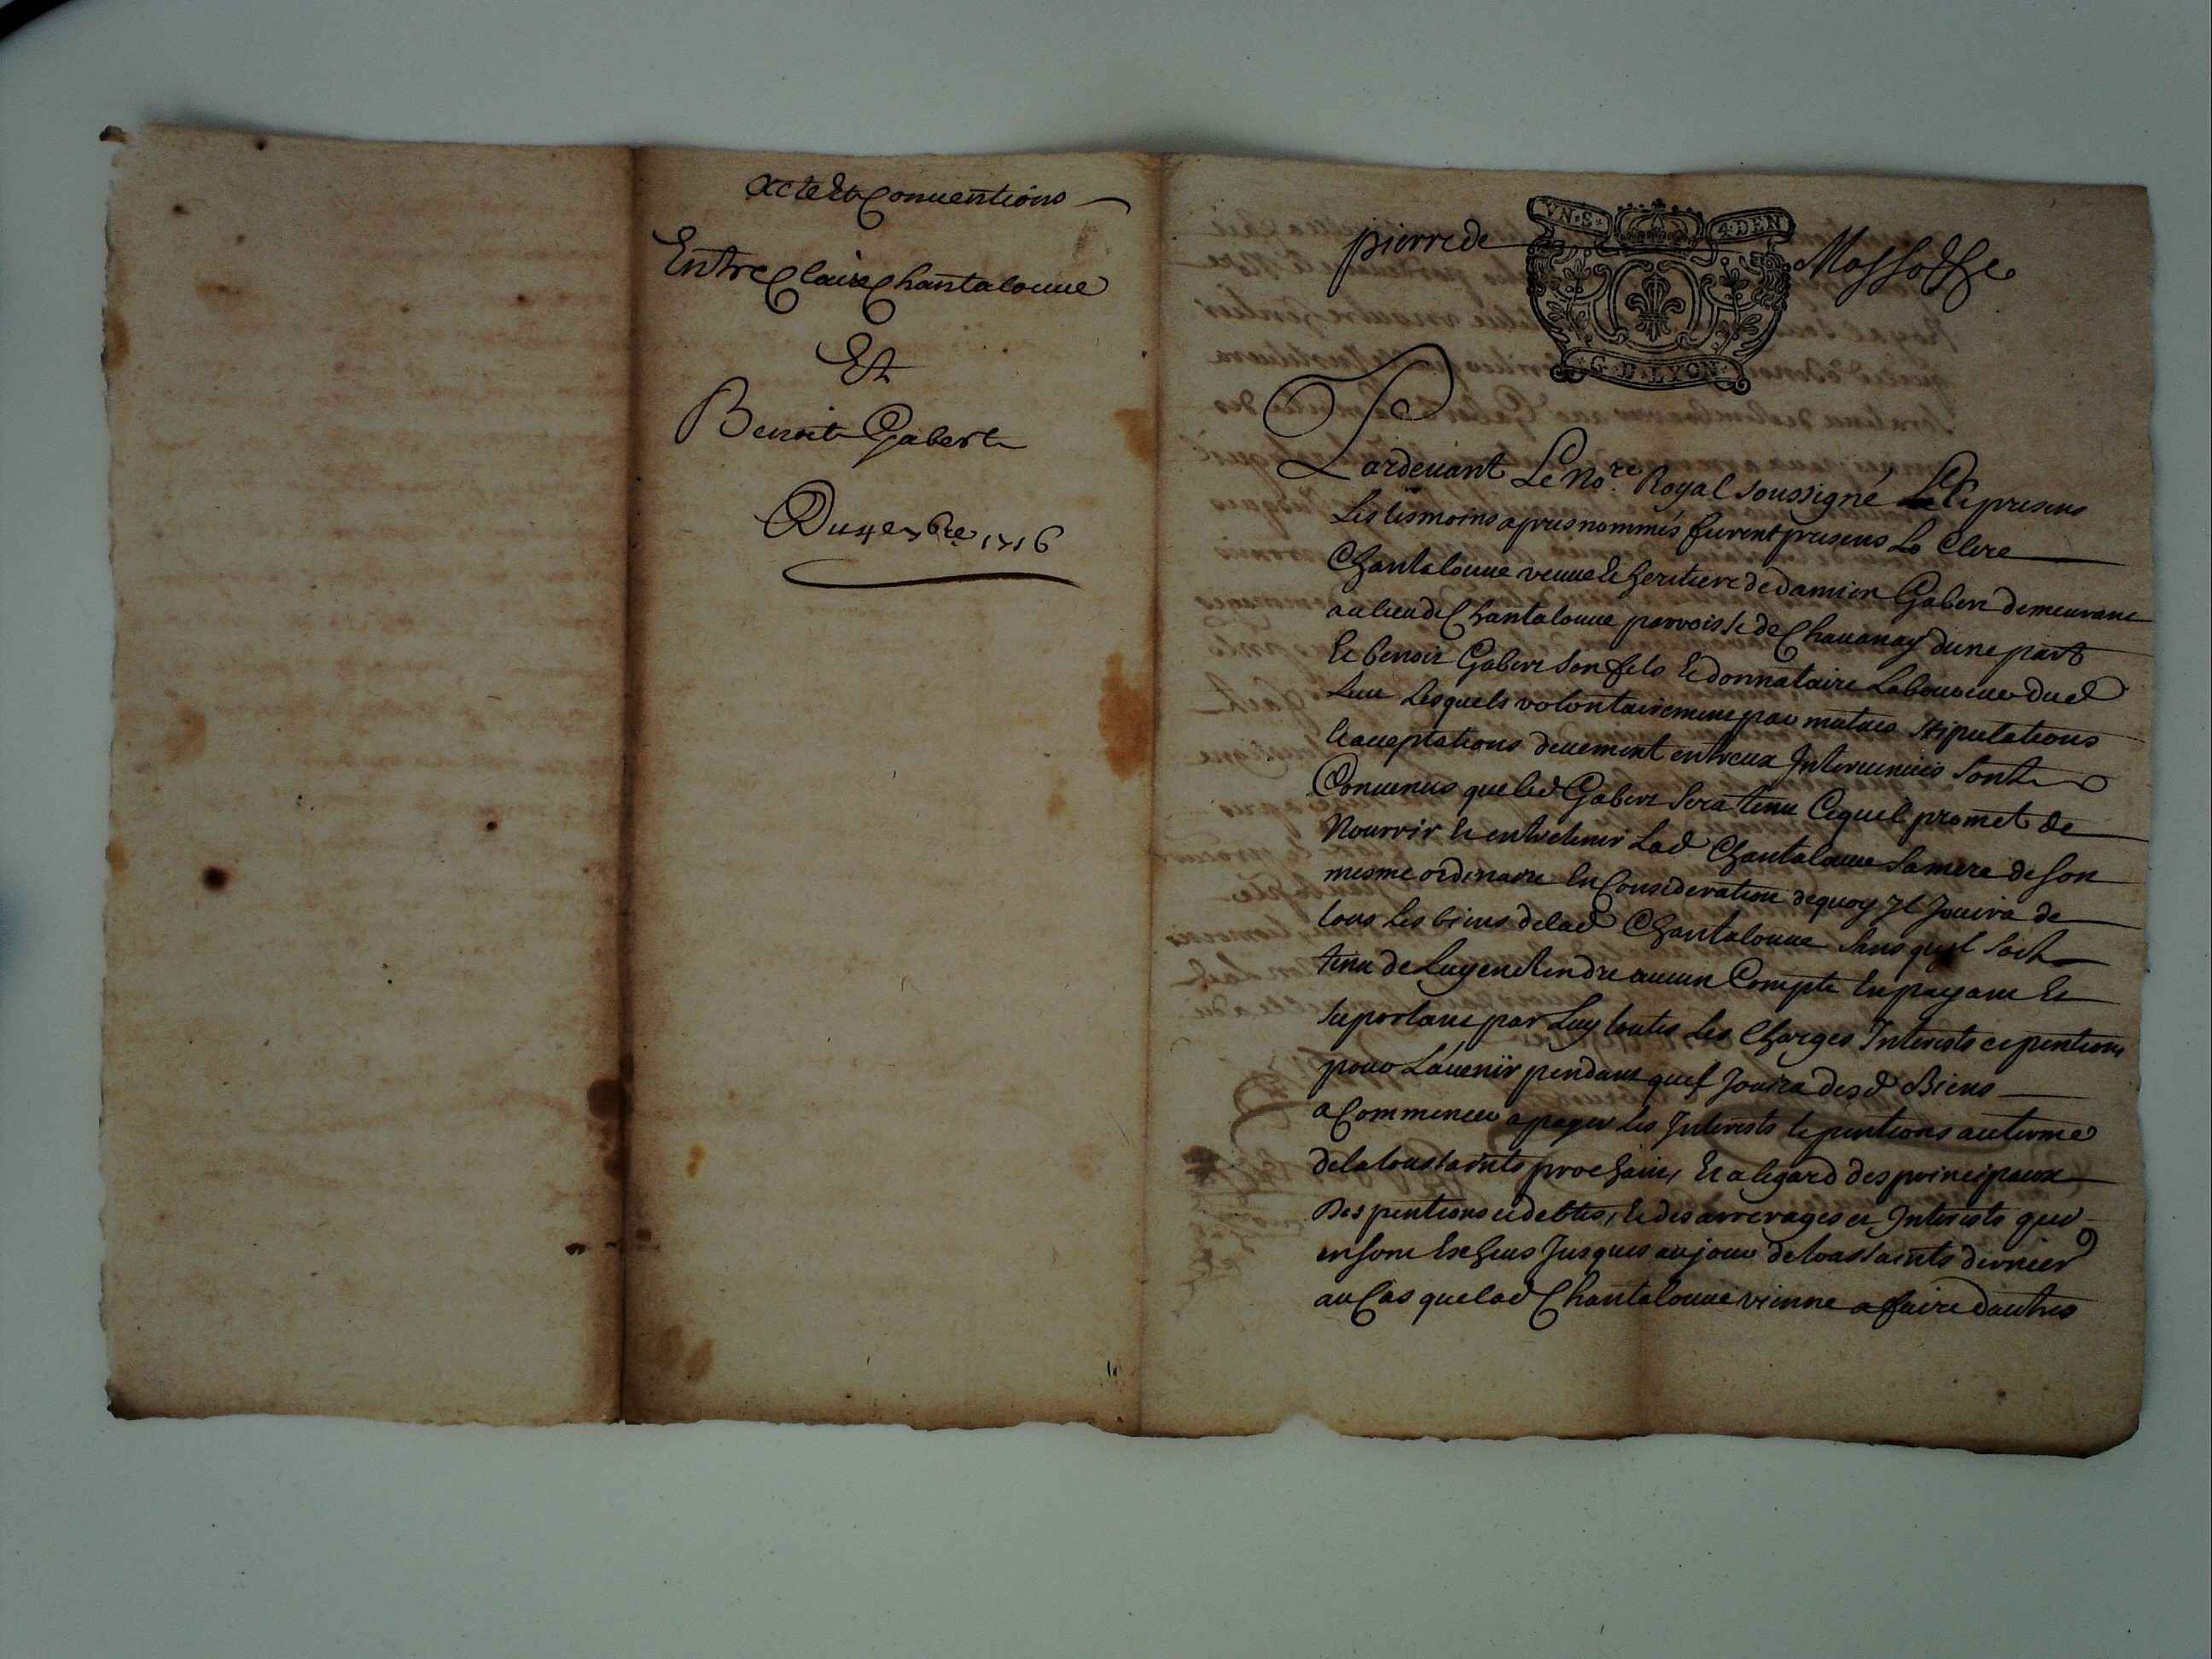 Acte Et Conuentions
Entre Claire Chantalouue
Et
Benoit Gabert
Du 4e 7bre 1716
VN·S· 4·DEN
pierre de
G·D·LYON
Pardeuant Le No.re Royal soussigné Et presens
Les tesmoins apres nommés furent presens Clere
Chantalouue veuue Et heritiere de damien Gabert demeurant
au lieu de Chantalouue parroisse de Chauanay dune part
Et benoit Gabert son fils Et donnataire Laboureur dud
Lieu Lesquels volontairement par mutues stipulations
Et acceptations deuement entreux Interuenues sont
Conuenus que led Gabert sera tenu Cequil promet de
Nourrir Et entretenir Lad Chantalouue sa mere de son
mesme ordinaire En Consideration dequoy Jl Jouira de
tous Les biens delad Chantalouue sans quil soit
tenu de Luy en Rendre aucun Compte En payant Et
suportant par Luy toutes Les Charges Interests et pentions
pour Láuenir pendant quil Jouira desd Biens
a Commencer a payer Les Interests Et pentions au terme
de la toussaints prochain, Et a legard des principaux
Des pentions et debtes, Et des arrerages et Interests qui
en sont Escheus Jusques au jour de toussaints dernier
au Cas que lad Chantalouue vienne a faire dautres